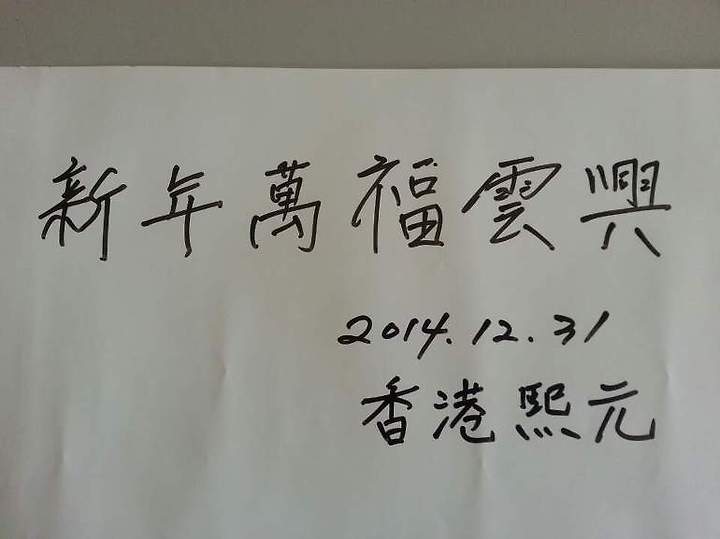 新年萬福雲興
2014.12.31
香港熙元